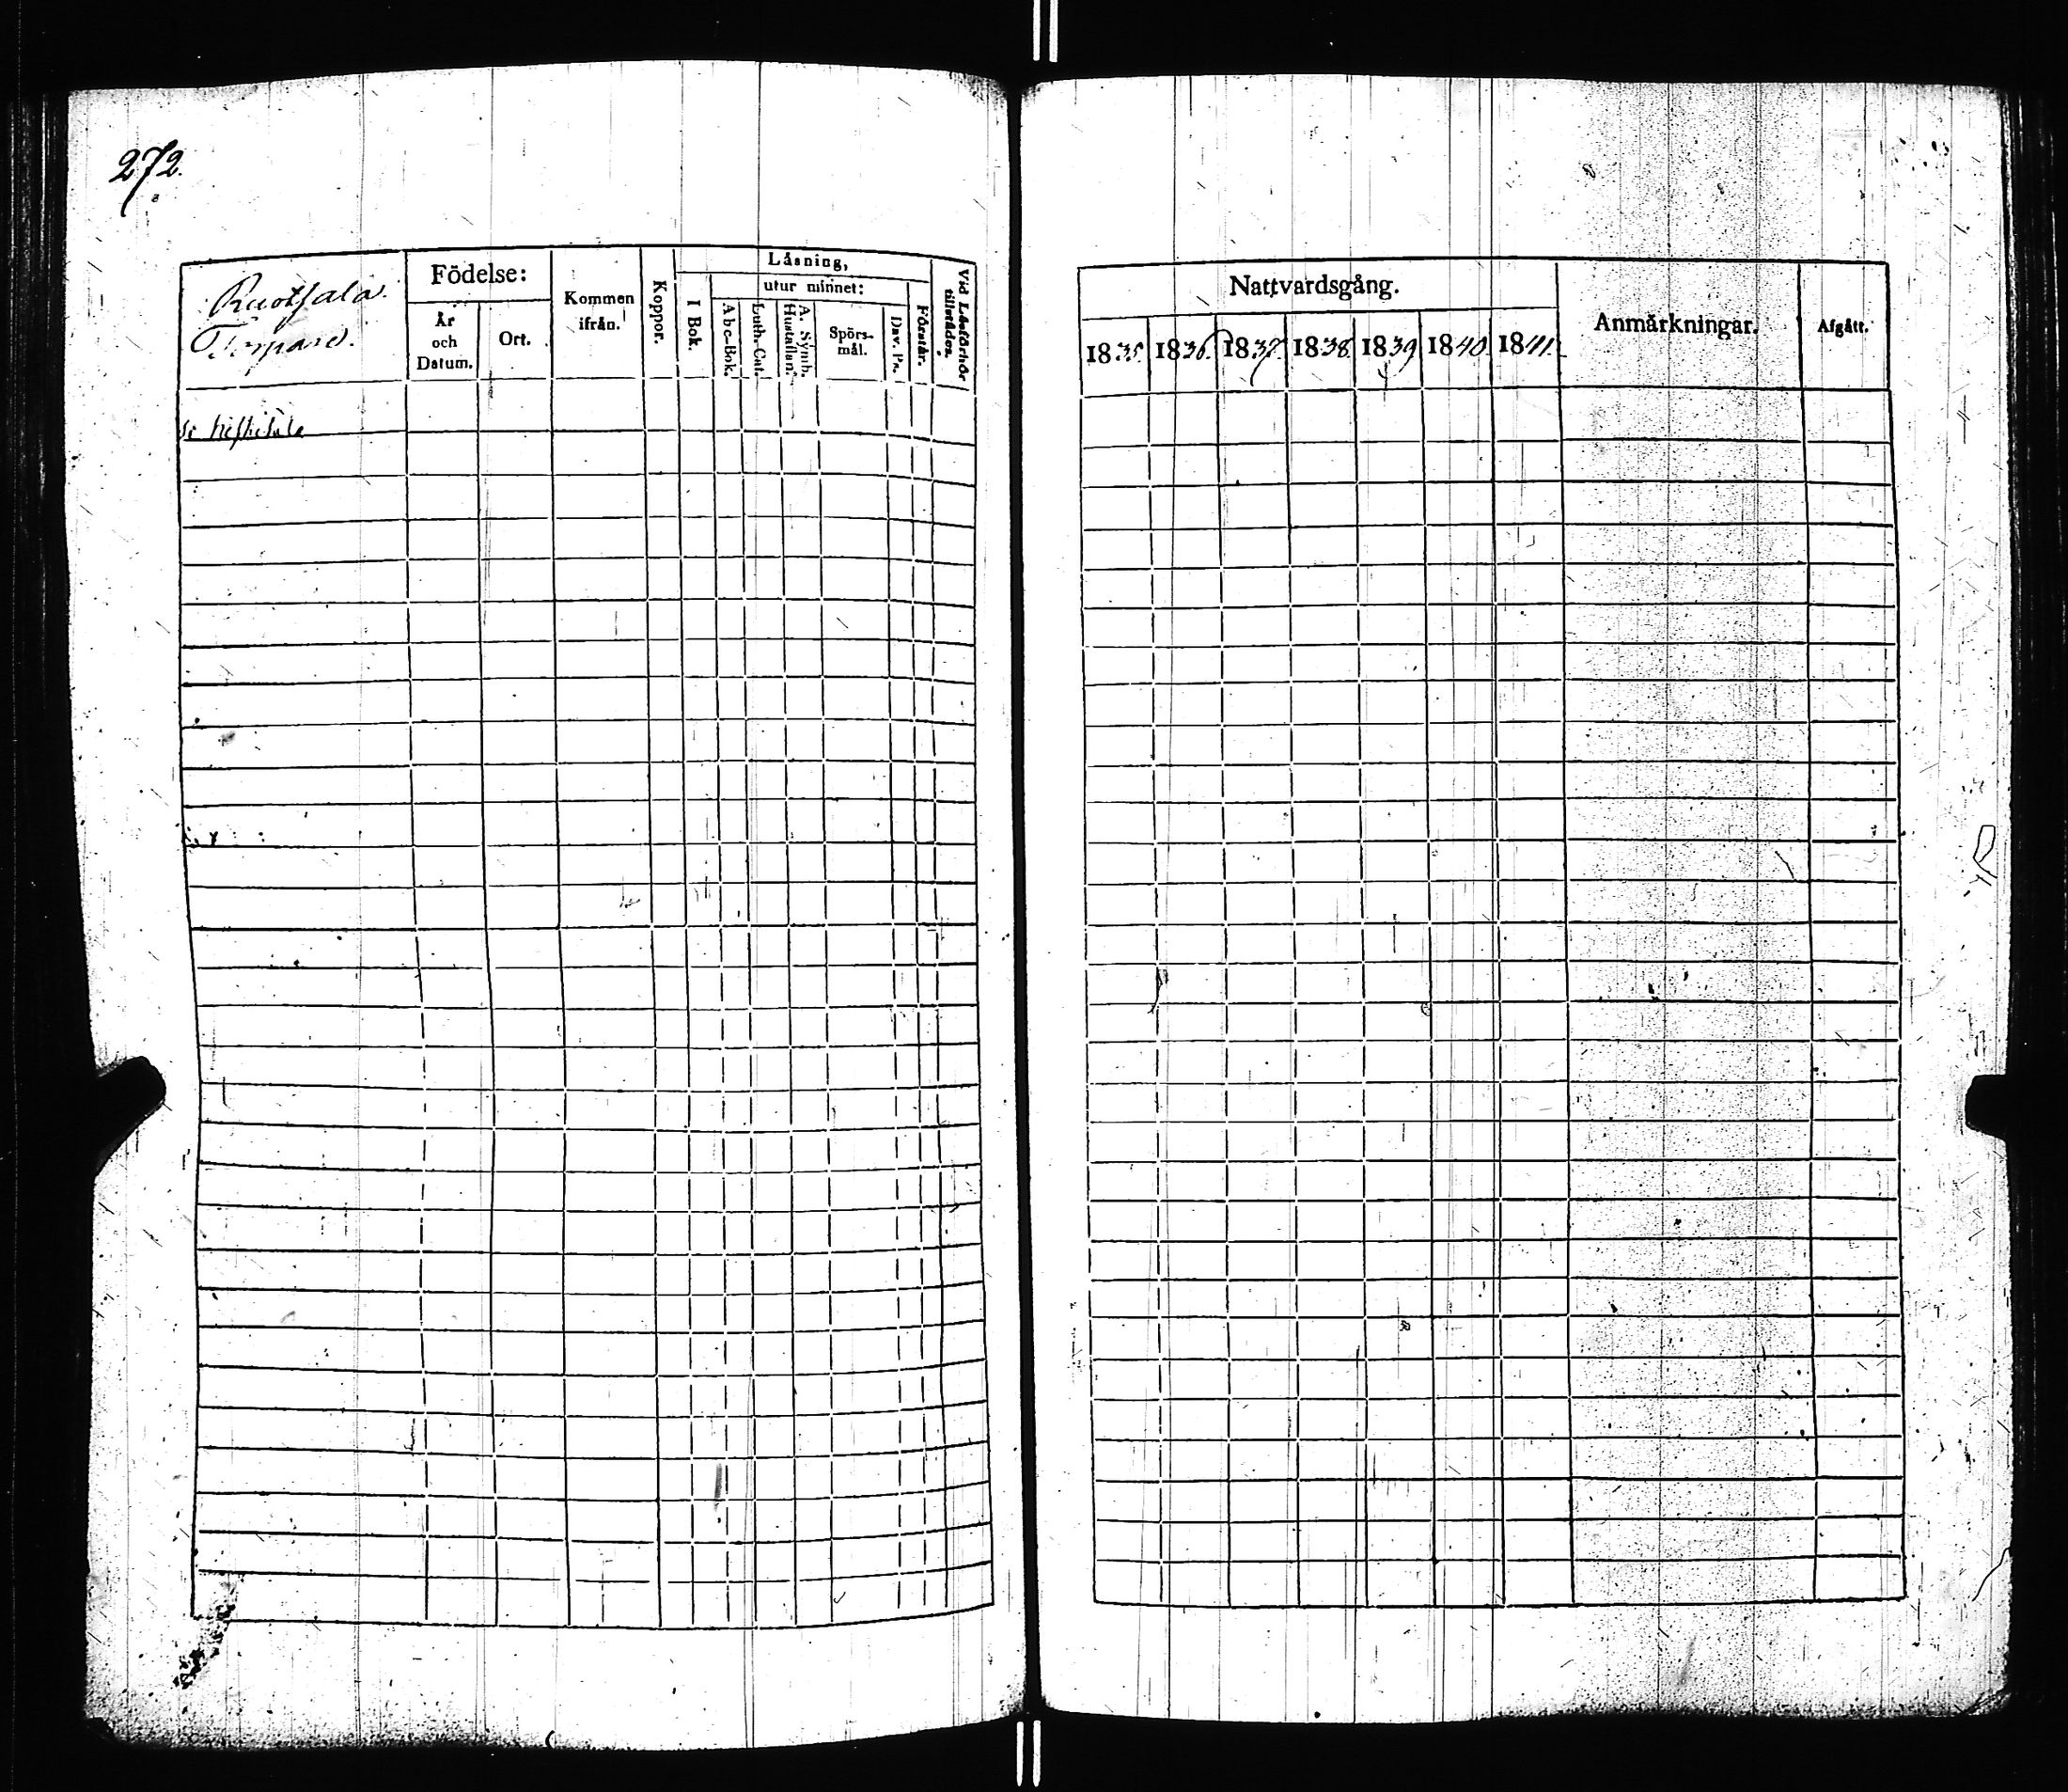 272.
Ruotsala
Torpare.
Födelse:
År
och
Datum.
Ort.
Kommen
ifrån.
Koppor.
Läsning,
I Bok.
utur minnet:
Abc-Bok.
Luth. Cat.
A. Symb.
Hustaflan.
Spörs-
mål.
Dav. Ps.
Förstår.
Vid Läsförhör
tillstädes.
se
Nattvardsgång.
1835. 1836. 1837. 1838. 1839 1840. 1841.
Anmärkningar.
Afgått.